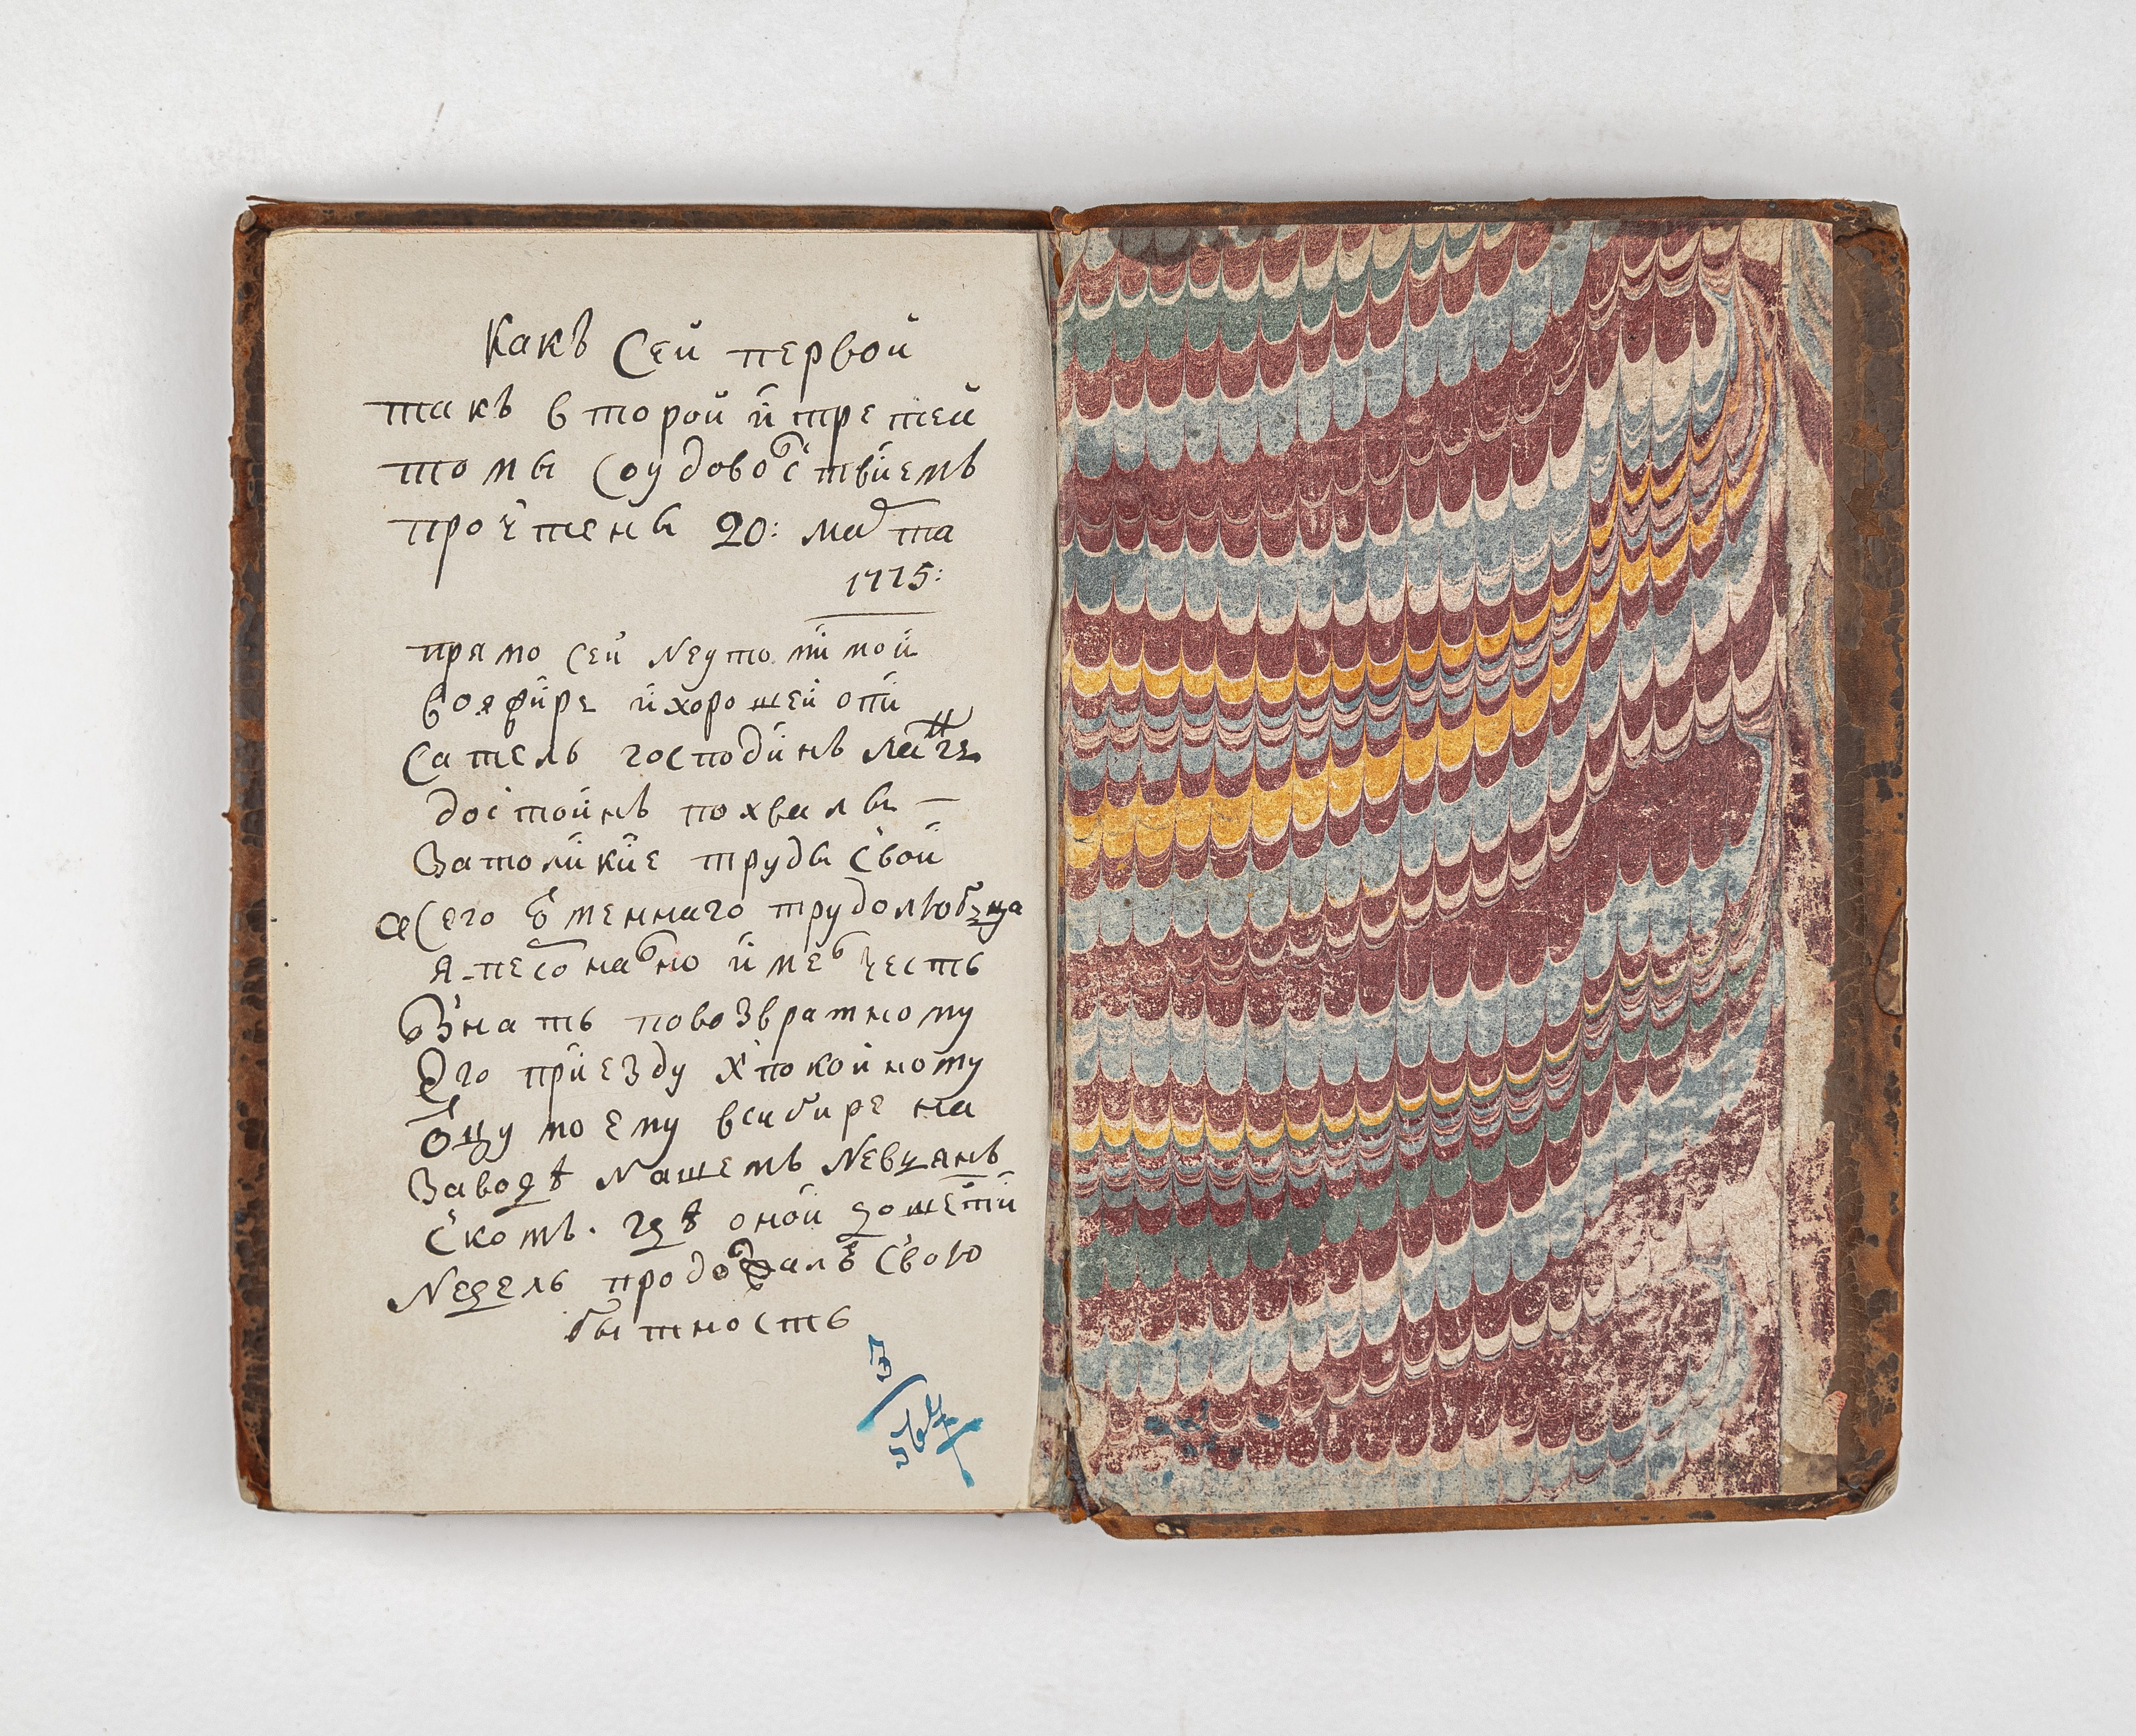 Какъ Сей первой
такъ второй и третей
томы Соудовольствиемъ
прочтены 20: марта
1775:
прямо сей неутомимой
вояжире и хорошей опи
сатель господинъ
достоинъ похвалы —
Затоликие труды Свои
а Сего трудолюбца
я персонално имел честь
знать повозвратному
Его приезду к покойному
отцу моему всибире на
Заводѣ нашемъ невьян
скомъ. гдѣ оной дошести
недель продолжалъ Свою
бытность
3
564